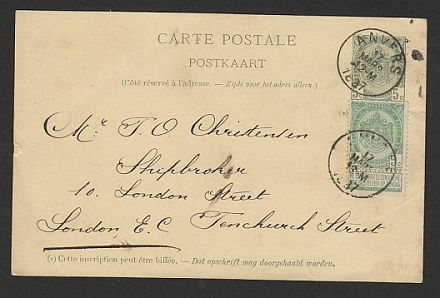 CARTE POSTALE
POSTKAART
(Côté réservé à l'adresse. — Zijde voor het adres alleen.)
ANVERS
17
MARS
12-M
1897
5c 5c
(*)
Mr. T. O. Christensen
Shipbroker
10. London Street
London, E.C Fenchurch Street
17
MARS
1897
5c
(*) Cette inscription peut être biffée. — Dat opschrift mag doorgehaald worden.